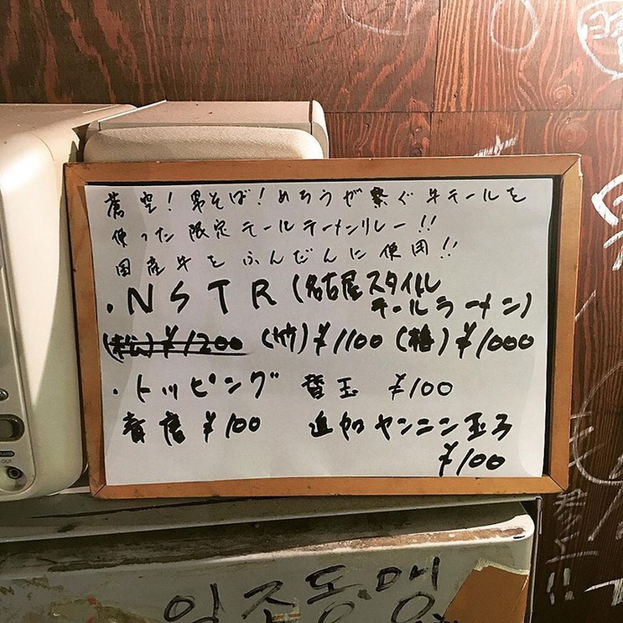 蒼空!男そば!めろうが繋ぐ牛テールを
使った限定テールラーメンリレー!!
国産牛をふんだんに使用!!
・NSTR(名古屋スタイル
テールラーメン)
(松)¥1200 (竹)¥1100 (梅)¥1000
・トッピング 替玉 ¥100
¥100 追加ヤンニン玉子
¥100
일조동맹